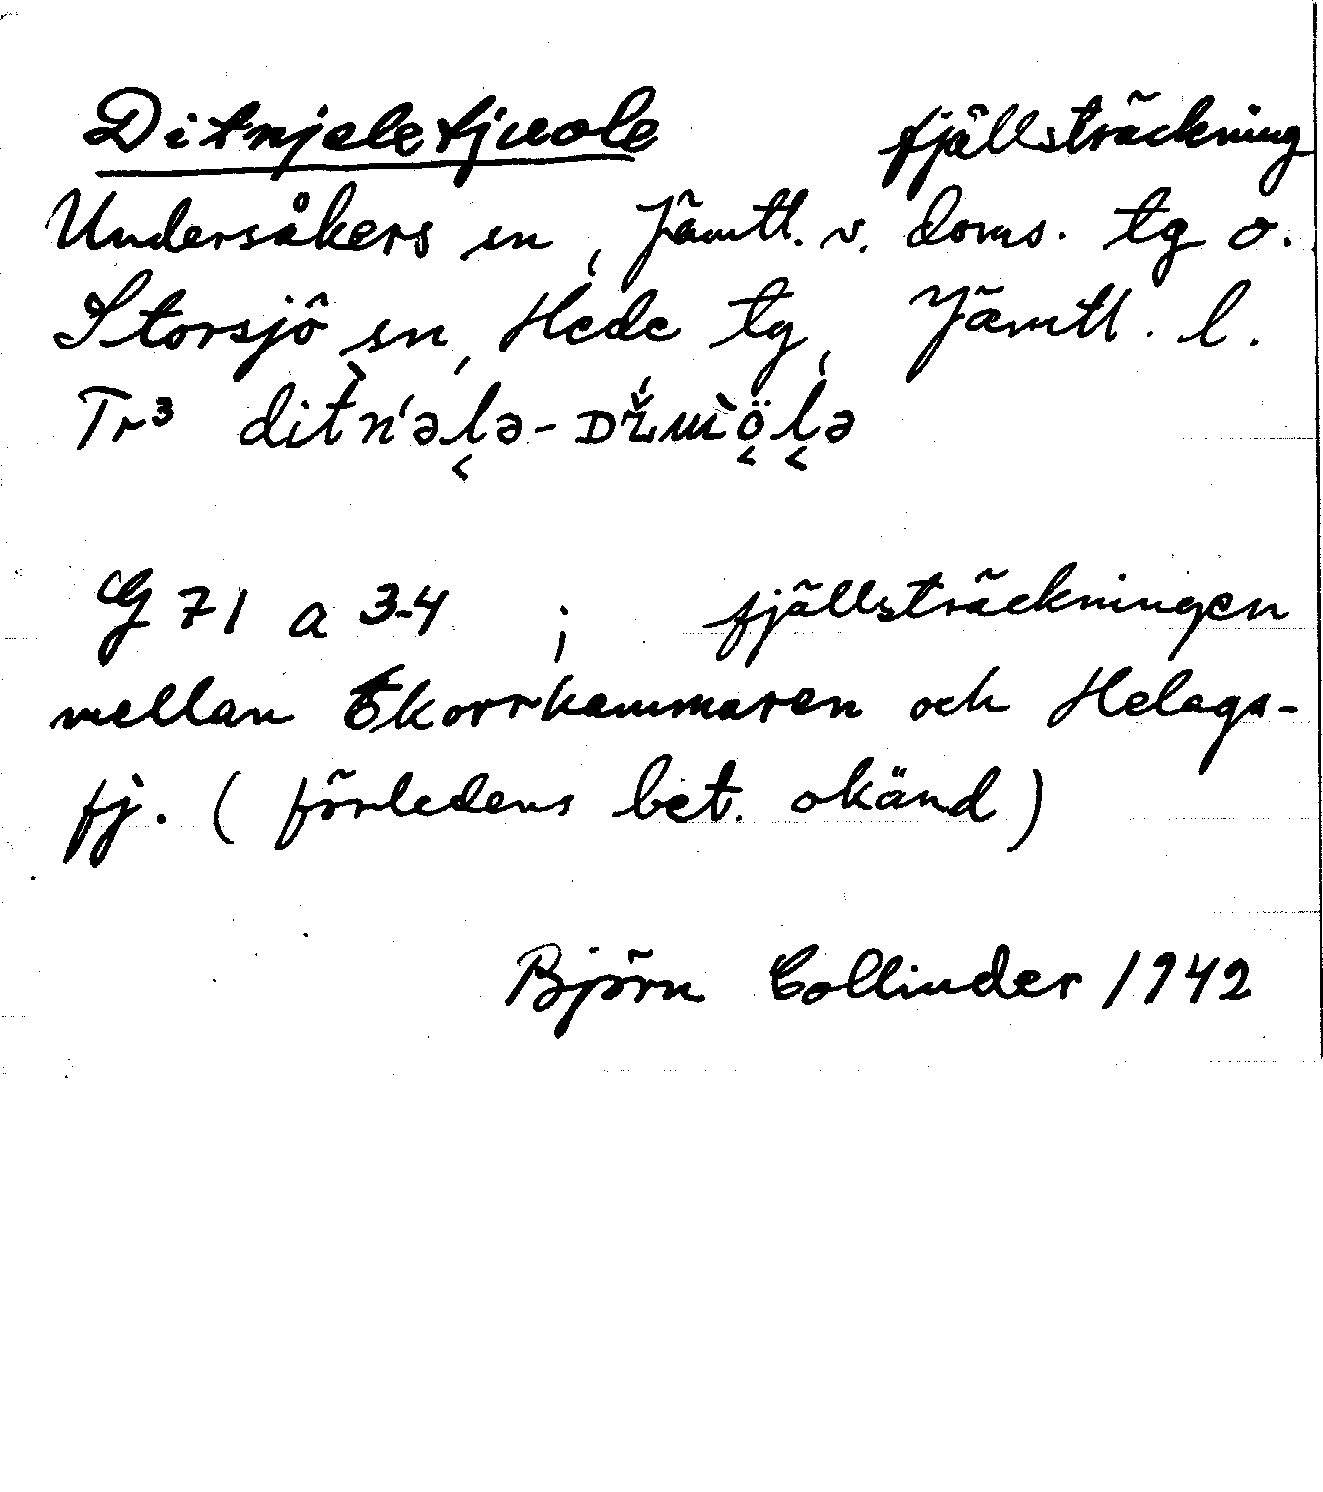 Ditnjeletjuole fjällsträckning
Undersåkers sn, Jämtl. v. doms. tg o.
Storsjö sn, Hede tg, Jämtl. l.
Tr³
G 71 a 3-4 ; fjällsträckningen
mellan Ekorrhammaren och Helags-
fj. (förledens bet. okänd)
Björn Collinder 1942